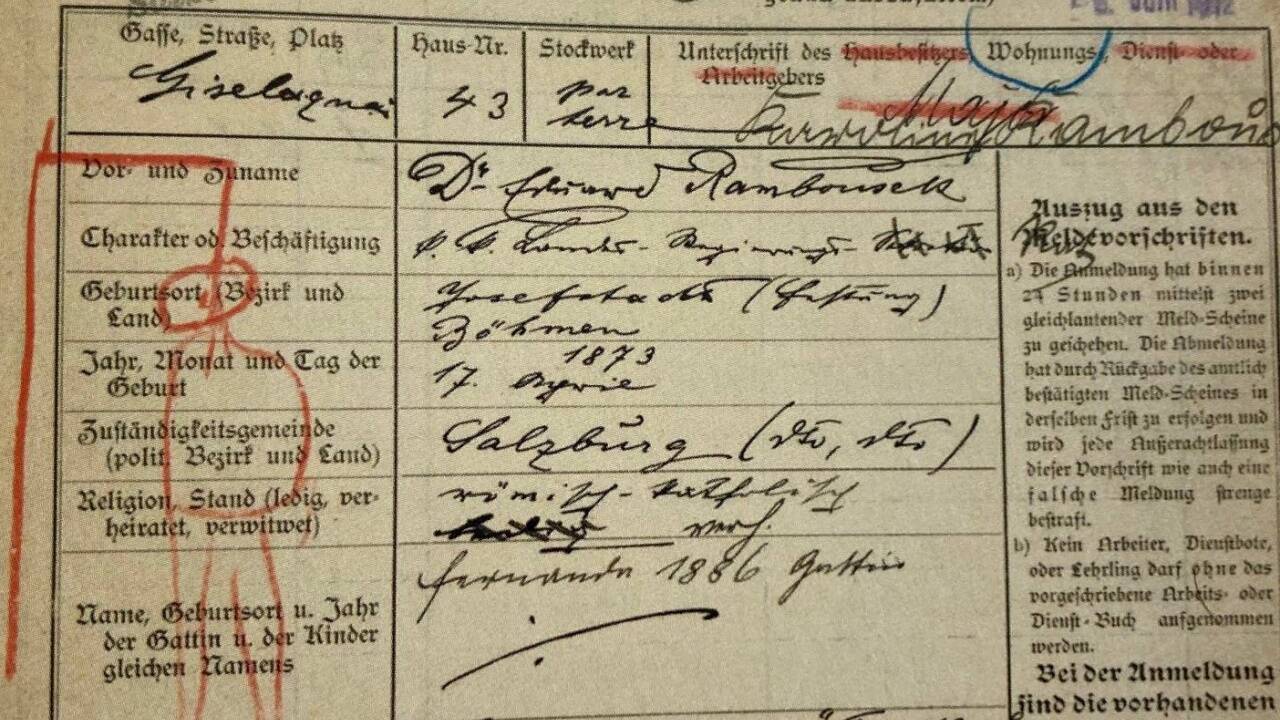 Gasse, Straße, Platz
Haus-Nr.
Stockwerk
Unterschrift des Hausbesitzers, Wohnungs-, Dienst- oder
Arbeitgebers
43
par
terre
Vor- und Zuname
Dr. Eduard Rambousek
Charakter od. Beschäftigung
k. k. Landes-Regierungs-
Geburtsort (Bezirk und
Land)
Josefstadt (Festung)
Böhmen
Jahr, Monat und Tag der
Geburt
1873
17. April
Zuständigkeitsgemeinde
(polit. Bezirk und Land)
Salzburg (dto, dto)
Religion, Stand (ledig, ver-
heiratet, verwitwet)
römisch-katholisch
ledig verh.
Name, Geburtsort u. Jahr
der Gattin u. der Kinder
gleichen Namens
Fernande 1886 Gattin
Auszug aus den
Meldevorschriften.
a) Die Anmeldung hat binnen
24 Stunden mittelst zwei
gleichlautender Meld-Scheine
zu geschehen. Die Abmeldung
hat durch Rückgabe des amtlich
bestätigten Meld-Scheines in
derselben Frist zu erfolgen und
wird jede Außerachtlassung
dieser Vorschrift wie auch eine
falsche Meldung strenge
bestraft.
b) Kein Arbeiter, Dienstbote,
oder Lehrling darf ohne das
vorgeschriebene Arbeits- oder
Dienst-Buch aufgenommen
werden.
Bei der Anmeldung
sind die vorhandenen